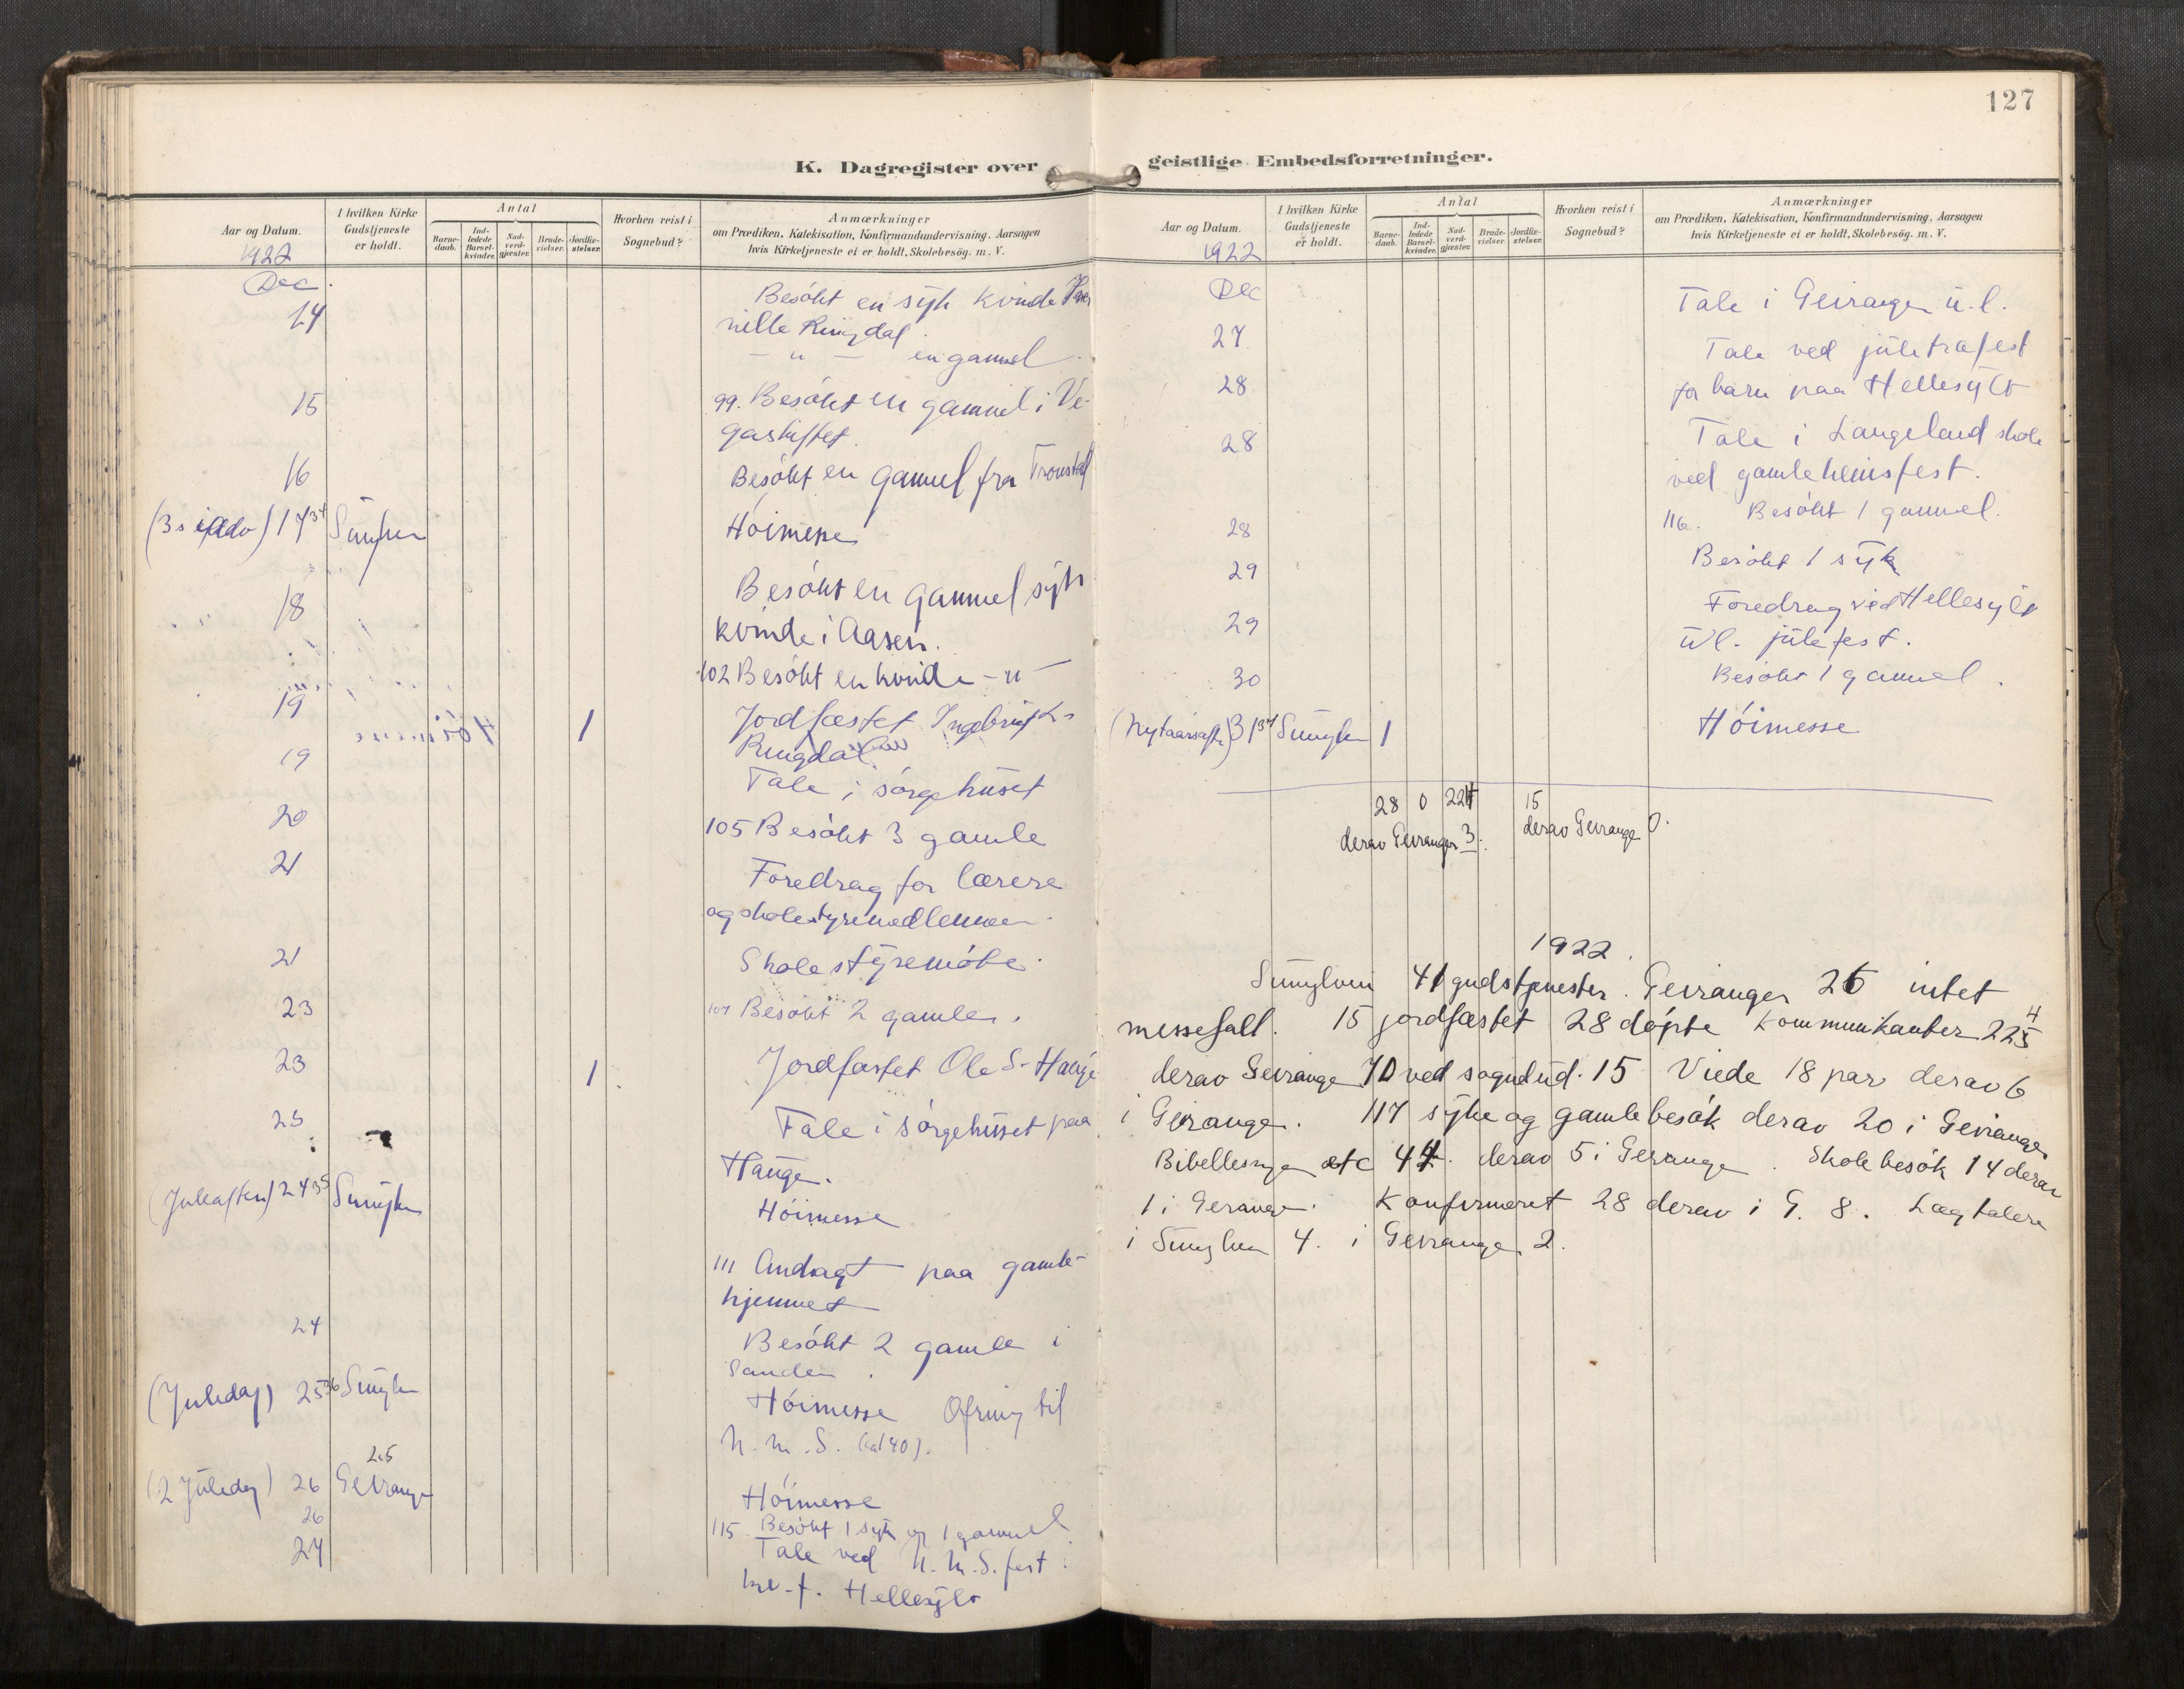 127
K. Dagregister over geistlige Embedsforretninger.
Aar og Datum.
I hvilken Kirke Gudstjeneste er holdt.
Antal
Barne-daab.
Ind-ledede Barsel-kvinder.
Nad-verd-gjæster.
Brude-vielser.
Jordfæ-stelser.
Hvorhen reist i Sognebud?
Anmærkninger
om Prædiken, Katekisation, Konfirmandundervisning, Aarsagen
hvis Kirketjeneste ei er holdt, Skolebesøg. m. V.
1922
Dec.
14 Besökt en syk kvinde Per
nille Ringdal.
— " — en gammel
15 99. Besökt en gammel i Ve-
gaskiftet.
16 Besökt en gammel fra Tronstad
(3 s i adv) 17 34 Sunylven Höimesse
18 Besökt en gammel syk
kvinde i Aasen.
19 102 Besökt en kvinde — " —
1 Jordfæstet Ingebrigt L.
Ringdal
19 Tale i sörgehuset
20 105 Besökt 3 gamle
21 Foredrag for lærere
og skolestyremedlemmer.
21 Skolestyremöte.
23 107 Besökt 2 gamle.
23 1 Jordfæstet Ole S. Hauge
23 Tale i sörgehuset paa
Hauge.
(Juleaften) 24 35 Sunylven Höimesse
111 Andagt paa gamle-
hjemmet
24 Besökt 2 gamle i
Sanden.
(Juledag) 25 36 Sunylven Höimesse Ofring til
N.M.S. (kal 40).
(2 Juledag) 26 Geiranger 25 Höimesse
26 115 Besökt 1 syk og 1 gammel
27 Tale ved N.M.S. fest
kv. f. Hellesylt
Aar og Datum.
I hvilken Kirke Gudstjeneste er holdt.
Antal
Barne-daab.
Ind-ledede Barsel-kvinder.
Nad-verd-gjæster.
Brude-vielser.
Jordfæ-stelser.
Hvorhen reist i Sognebud?
Anmærkninger
om Prædiken, Katekisation, Konfirmandundervisning, Aarsagen
hvis Kirketjeneste ei er holdt, Skolebesög. m. V.
1922
Dec
Tale i Geiranger u.l.
27 Tale ved juletrafest
28 for barn paa Hellesylt
28 Tale i Langeland skole
ved gamleheimsfest.
28 116. Besökt 1 gammel.
29 Besökt 1 syk
29 Foredrag ved Hellesylt
ul. julefest.
30 Besökt 1 gammel.
(Nytaarsaften) 31 37 Sunylven 1 Höimesse
28 0 224 15
derav Geiranger 3. derav Geiranger 0.
1922.
Sunylven 41 gudstjenester. Geiranger 25 intet
messefall. 15 jordfæstet 28 döpte Kommunikanter 224
derav Geiranger 70 ved sognebud. 15 Viede 18 par derav 6
i Geiranger. 117 syke og gamlebesök derav 20 i Geiranger
Bibellesninger etc 44. derav 5 i Geiranger. Skolebesök 14 derav
1 i Geiranger. Konfirmeret 28 derav i G. 8. Lægtalere
i Sunylven 4. i Geiranger 2.